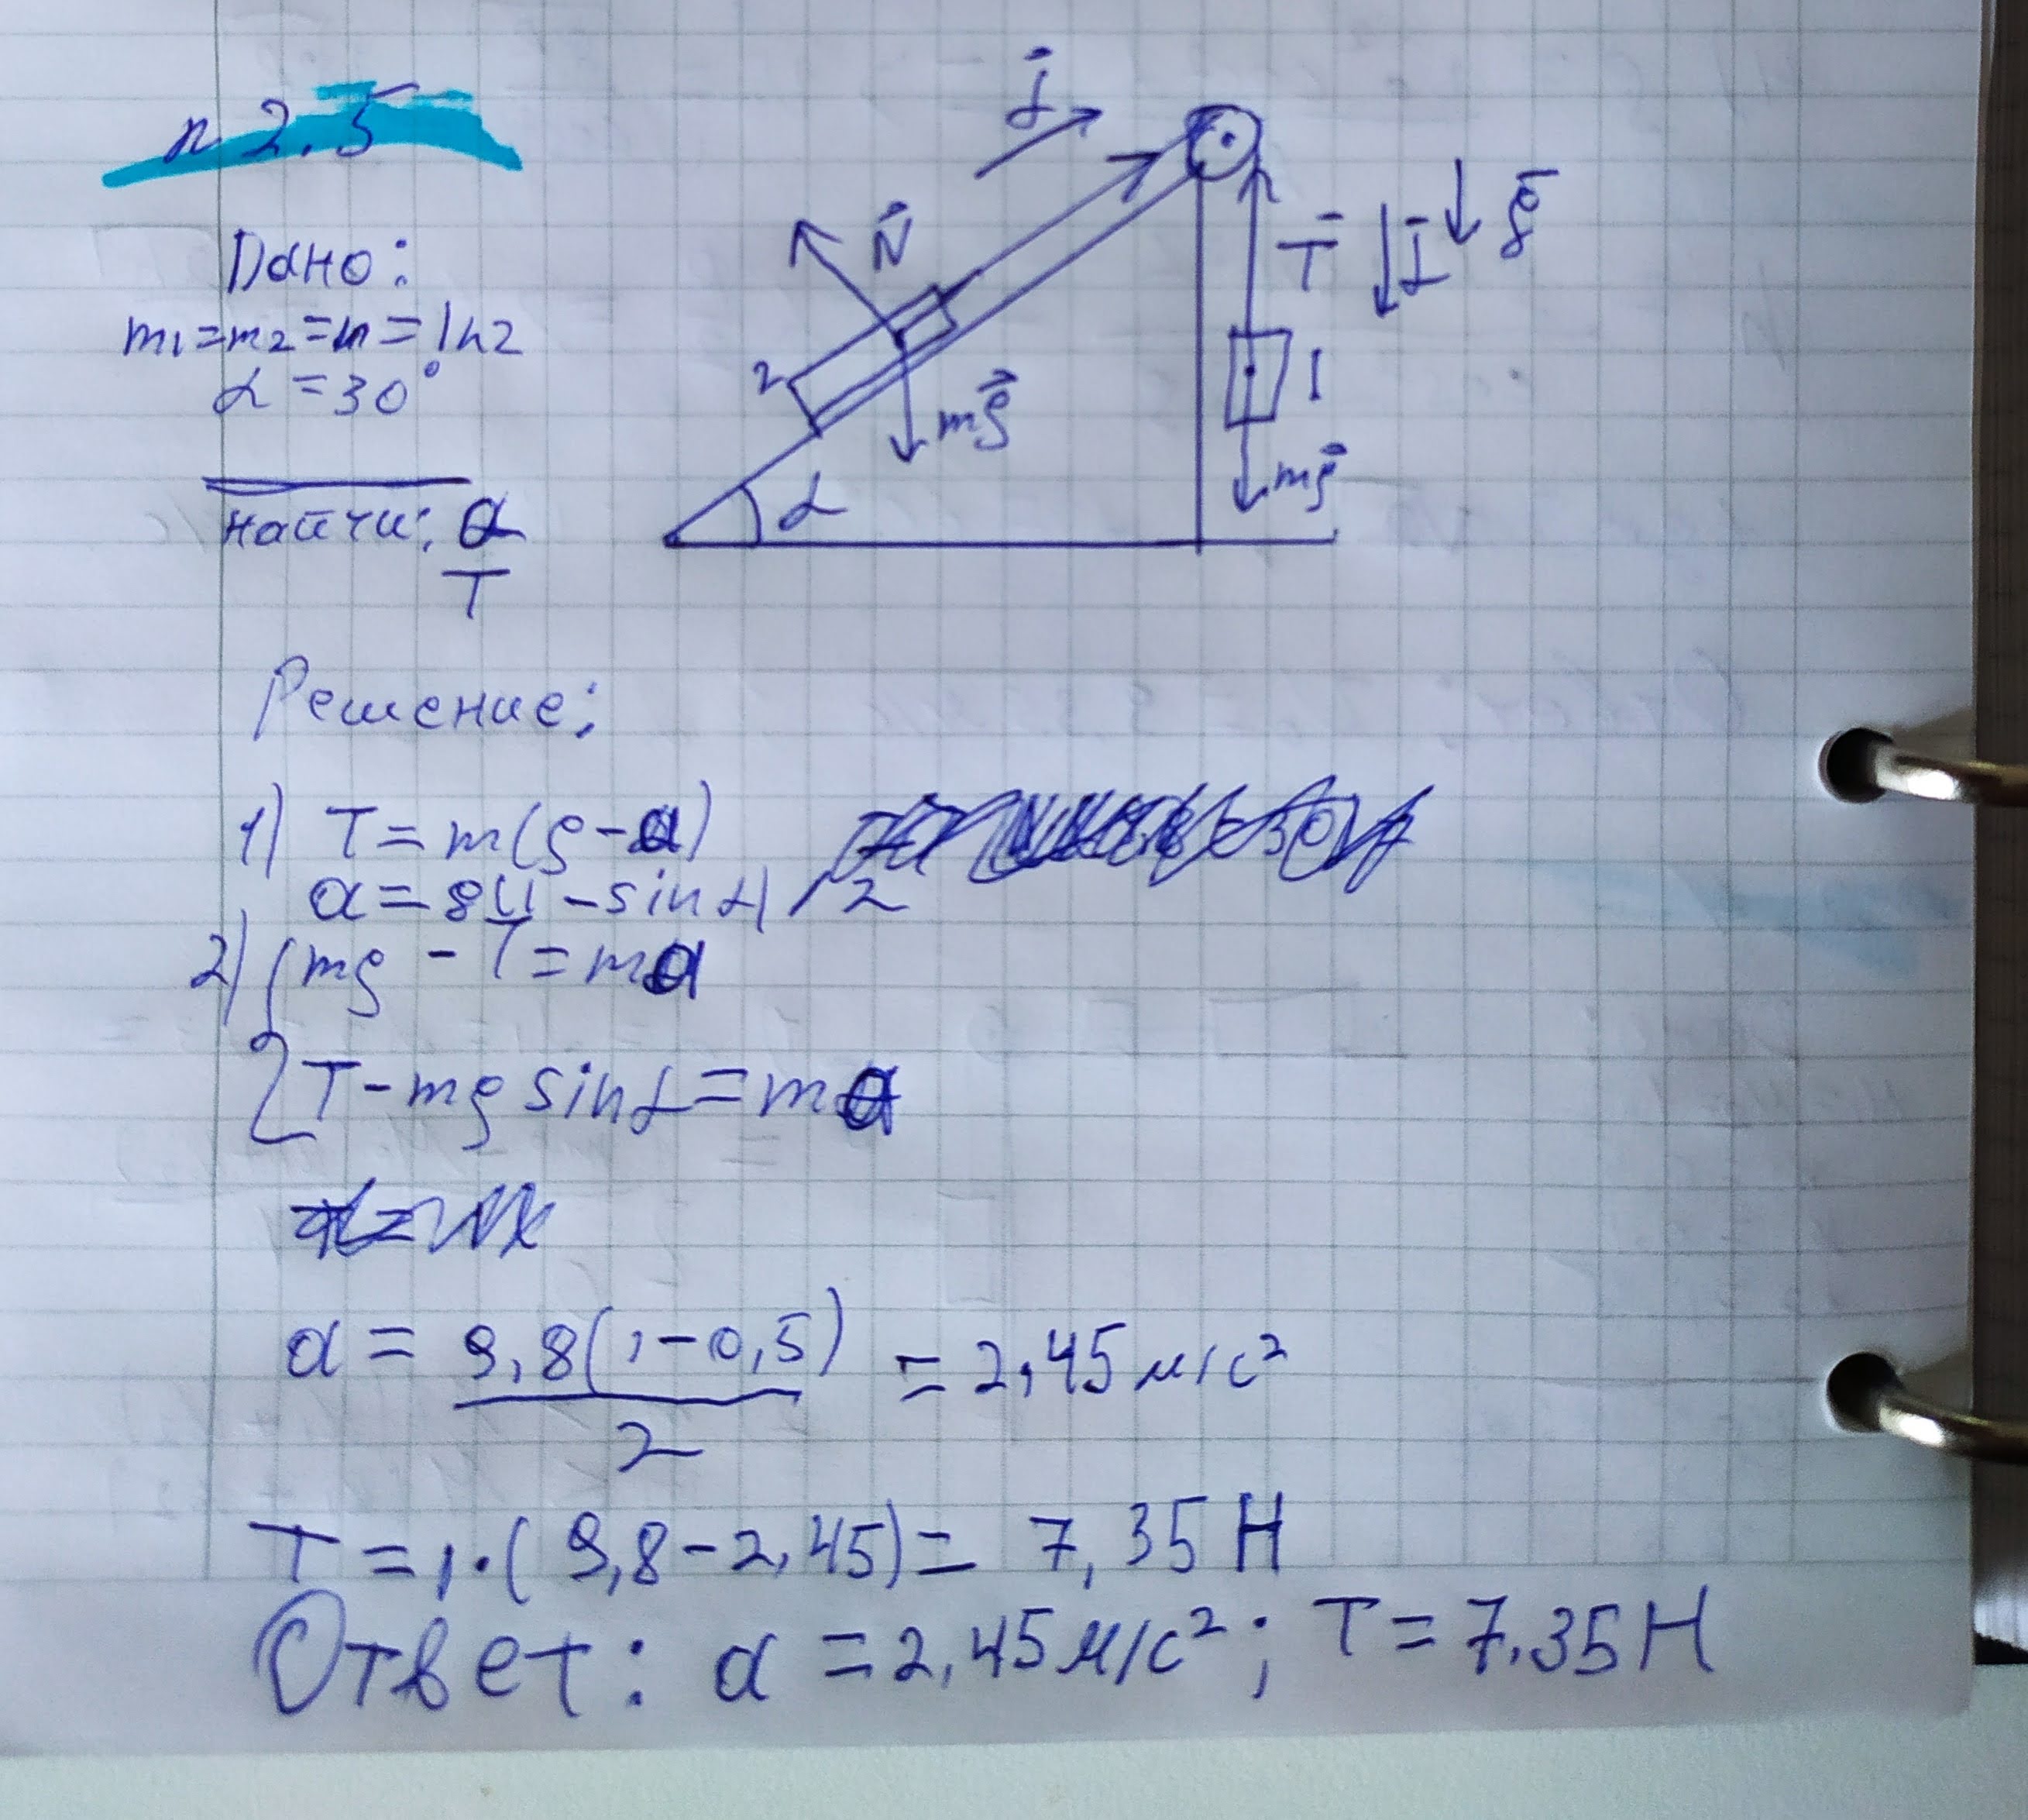 n 2.5
Дано:
m₁=m₂=m=1кг
α=30°
Найти: a
T
N
mg
α
T
g
1
mg
2
Решение:
1) T=m(g-a)
a=g(1-sinα)/2
2) {mg-T=ma
T-mg sinα=ma
a = 9,8(1-0,5)/2 = 2,45 м/с²
T=1·(9,8-2,45)= 7,35 Н
Ответ: a=2,45 м/с²; T=7,35 Н